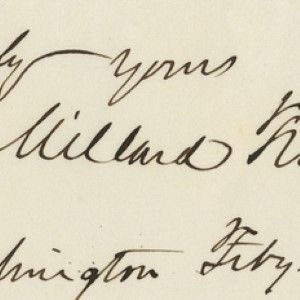 ly yours
Millard Fi
hington Feby